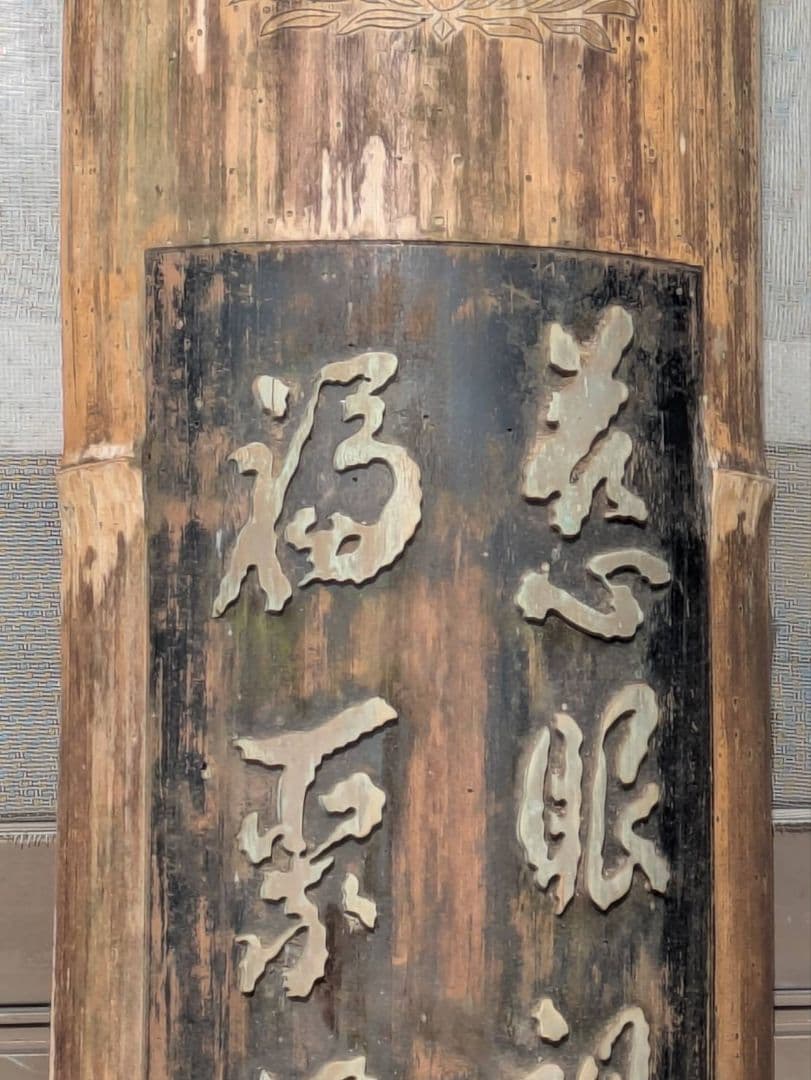 慈眼視
福聚